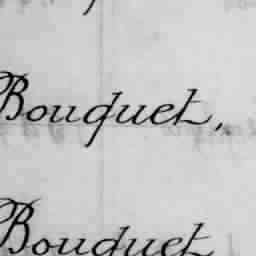 Bouquet,
Bouquet